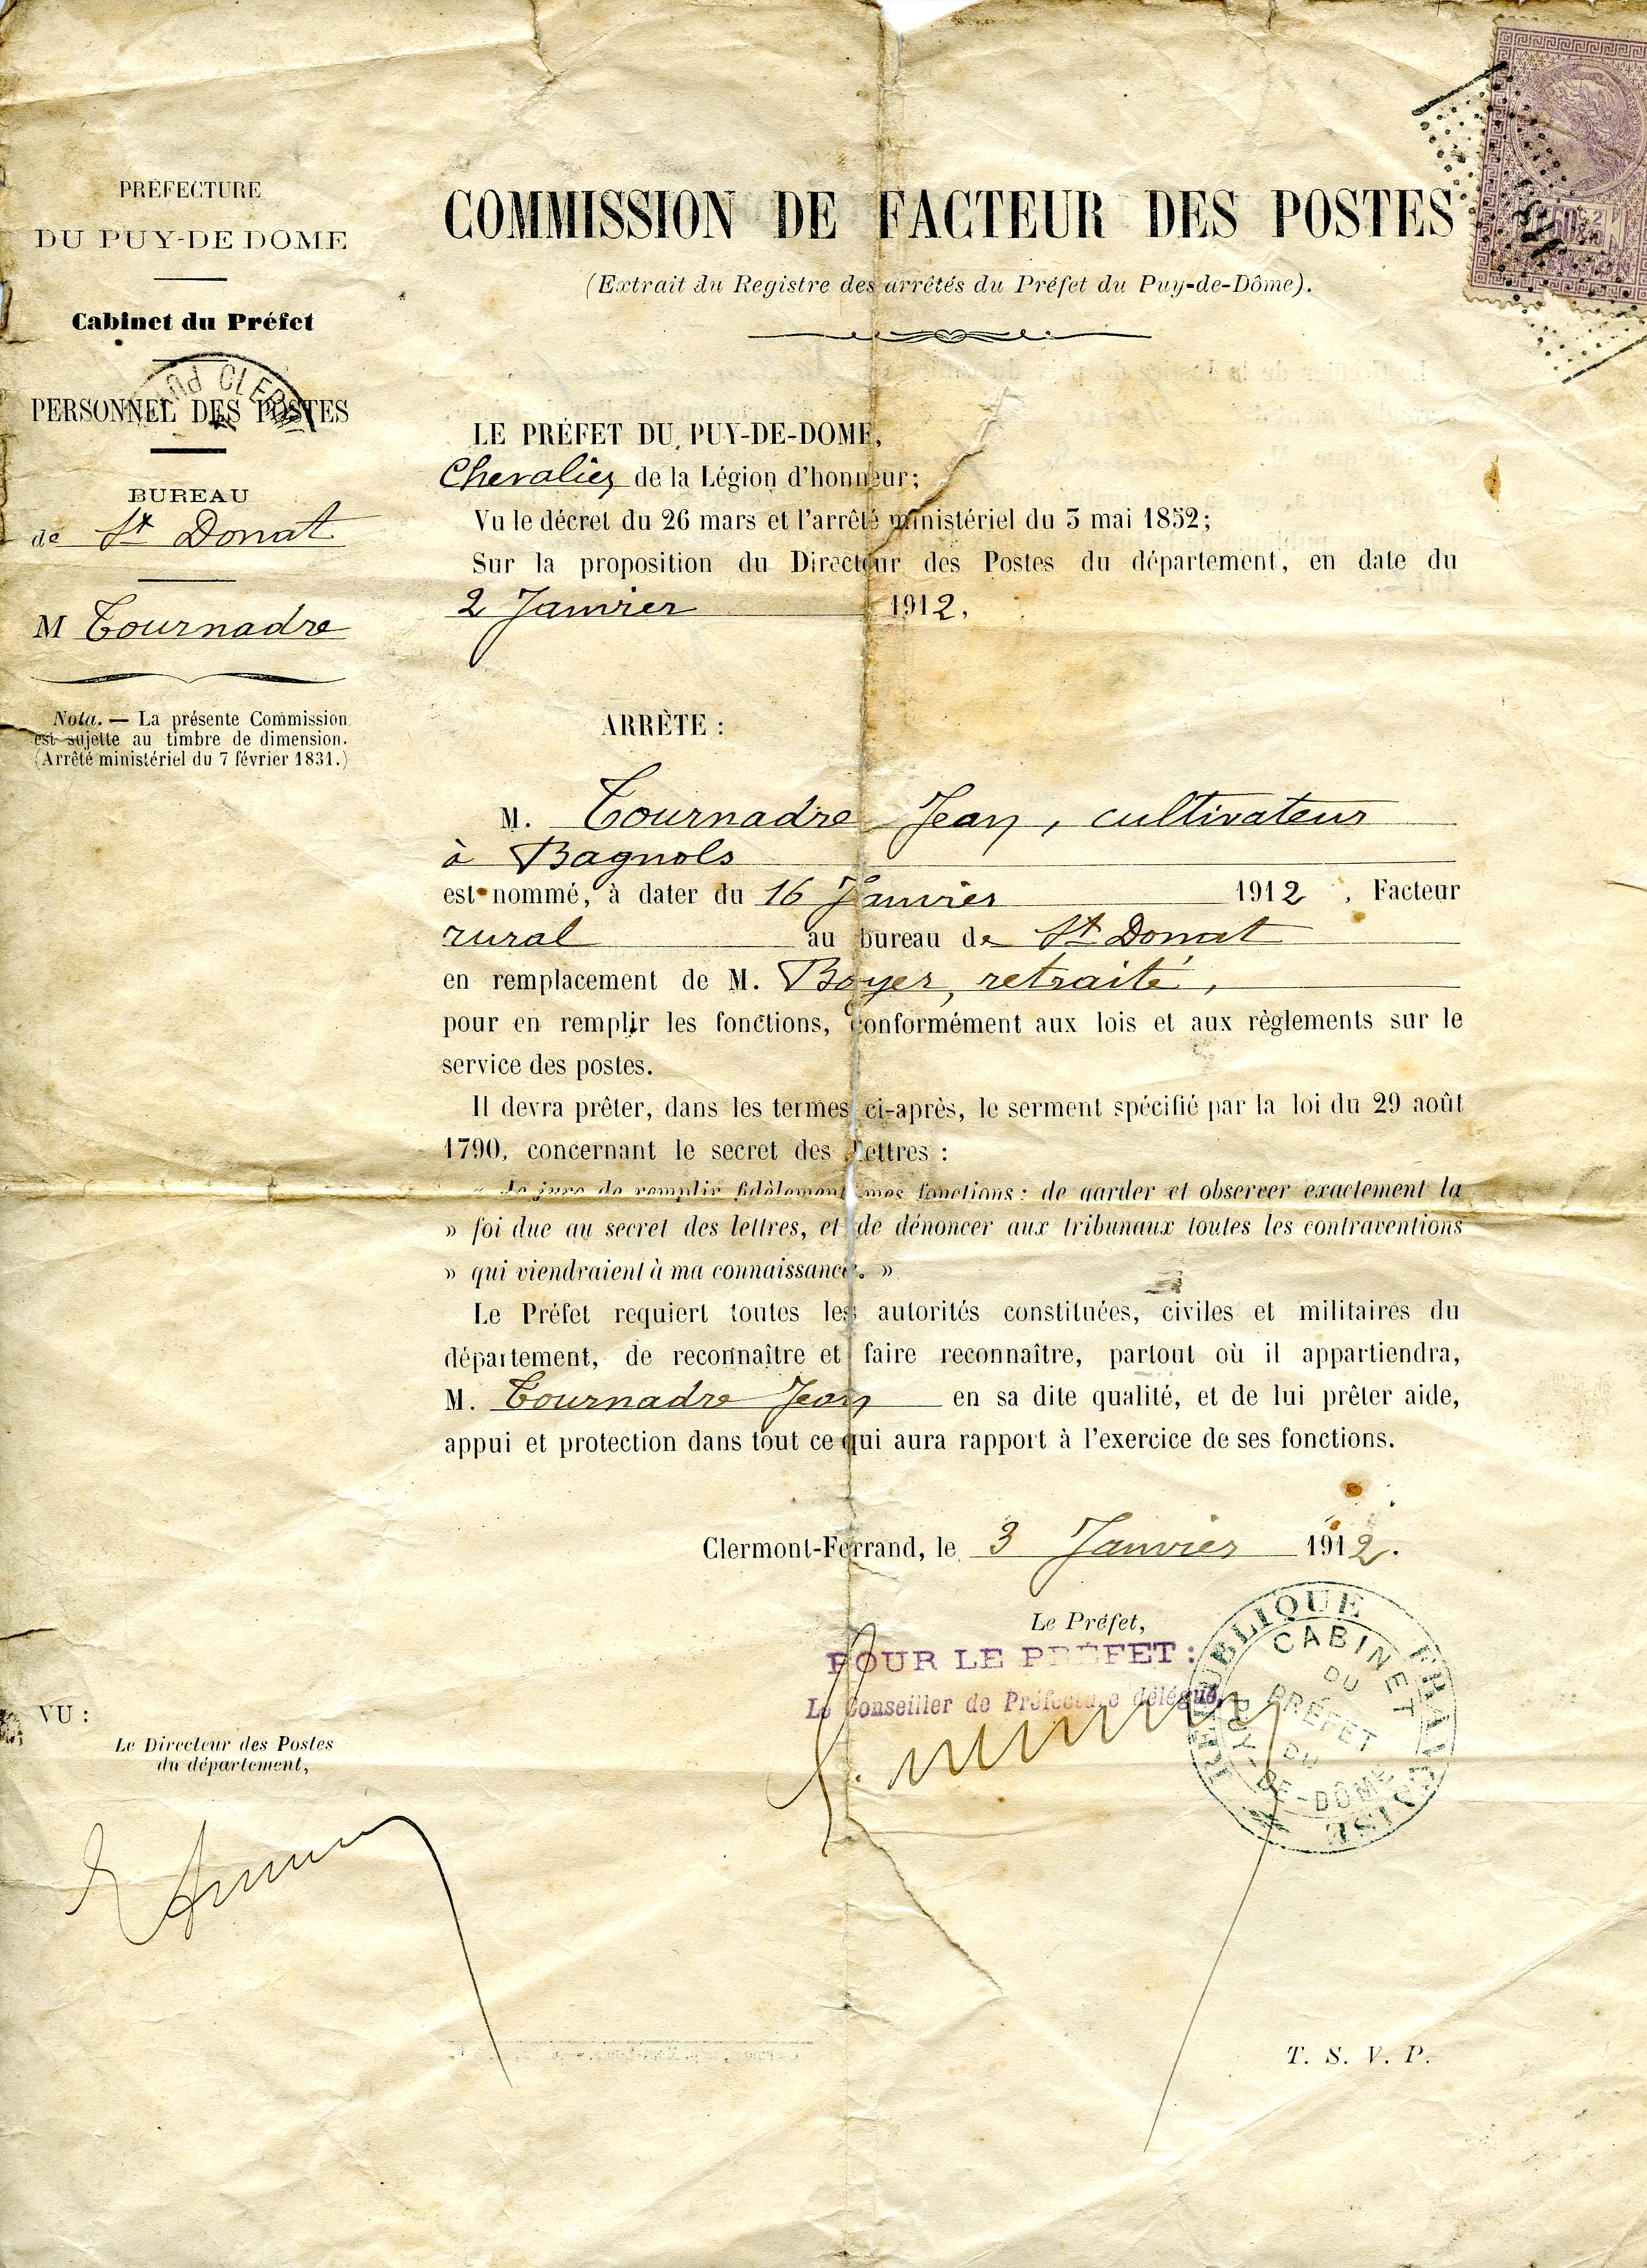 PRÉFECTURE
DU PUY-DE DOME
Cabinet du Préfet
PERSONNEL DES POSTES
BUREAU
de St Donat
M Tournadre
Nota. — La présente Commission
est sujette au timbre de dimension.
(Arrêté ministériel du 7 février 1831.)
COMMISSION DE FACTEUR DES POSTES
(Extrait du Registre des arrêtés du Préfet du Puy-de-Dôme).
LE PRÉFET DU PUY-DE-DOME,
Chevalier de la Légion d'honneur;
Vu le décret du 26 mars et l'arrêté ministériel du 3 mai 1852;
Sur la proposition du Directeur des Postes du département, en date du
2 Janvier 1912.
ARRÊTE :
M. Tournadre Jean, cultivateur
à Bagnols
est nommé, à dater du 16 Janvier 1912, Facteur
rural au bureau de St Donat
en remplacement de M. Boyer, retraité,
pour en remplir les fonctions, conformément aux lois et aux règlements sur le
service des postes.
Il devra prêter, dans les termes ci-après, le serment spécifié par la loi du 29 août
1790, concernant le secret des lettres :
« Je jure de remplir fidèlement mes fonctions : de garder et observer exactement la
» foi due au secret des lettres, et de dénoncer aux tribunaux toutes les contraventions
» qui viendraient à ma connaissance. »
Le Préfet requiert toutes les autorités constituées, civiles et militaires du
département, de reconnaître et faire reconnaître, partout où il appartiendra,
M. Tournadre Jean en sa dite qualité, et de lui prêter aide,
appui et protection dans tout ce qui aura rapport à l'exercice de ses fonctions.
Clermont-Ferrand, le 3 Janvier 1912.
Le Préfet,
POUR LE PRÉFET :
Le Conseiller de Préfecture délégué,
RÉPUBLIQUE FRANÇAISE
CABINET
DU
PRÉFET
DU
PUY-DE-DÔME
VU :
Le Directeur des Postes
du département,
T. S. V. P.